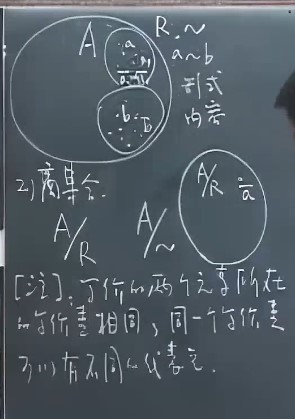 A
R, ~
a
a~b
形式
b
内容
2) 商集合.
A/R
A/~
A/R
a
[注]: 等价的两个元素所在
的等价类相同, 同一个等价类
可以有不同的代表元.